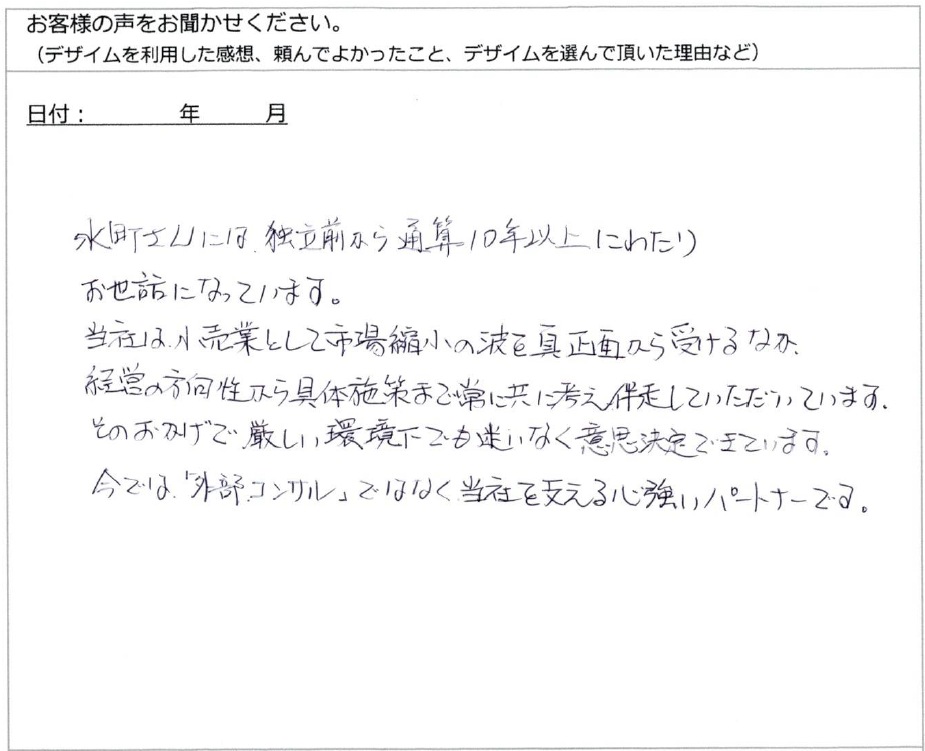 お客様の声をお聞かせください。
（デザイムを利用した感想、頼んでよかったこと、デザイムを選んで頂いた理由など）
日付：　　　年　　　月
水町さんには、独立前から通算10年以上にわたり
お世話になっています。
当社は、小売業として市場縮小の波を真正面から受けるなか、
経営の方向性から具体施策まで常に共に考え、伴走していただいています。
そのおかげで厳しい環境下でも迷いなく意思決定できています。
今では、「外部コンサル」ではなく当社を支える心強いパートナーです。